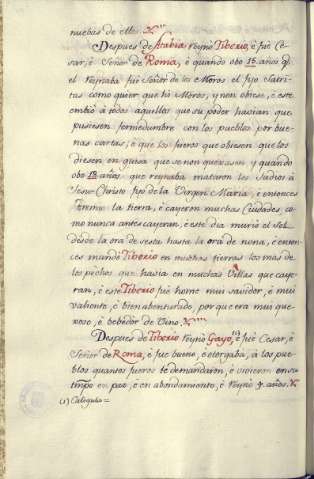 nuebas de ellos.
Despues de Arabia reynó Tiberio, é fué Ce-
sar, é Señor de Roma, é quando obo 15 años ql.
el Reynaba fué Señor de los Moros el fijo
como quier que hi Moros, y non obiese, é este
embió à todos aquellos que su poder havian que
pusiesen firmedumbre con los pueblos por bue-
nas cartas, é que los fueros que obiesen que los
diesen en guisa que se non quexasen y quando
obo 18 años, que reynaba mataron los Judios à
Jesu-Christo fijo de la Vergen Maria, é entonces
Tremió la tierra, é cayeron muchas Ciudades, co-
mo nunca antes cayeran, é este dia murió el Sol
desde la ora de sesta hasta la ora de nona, é enton-
ces mandó Tiberio en muchas tierras los mas de
los pechos que havia en muchas Villas que caye-
ran, é este Tiberio fué home mui savidor, é mui
valiente, é bien abenturado, por que era mui que-
xoso, é bebedor de Vino.
Despues de Tiberio reynó Gayo, (1) fué Cesar, é
Señor de Roma, é fué bueno, é otorgaba, à los pue-
blos quantos fueros le demandaron, é vivieron en su
tiempo en paz, é en abondamiento, é Reynó 4 años.
(1) Caligula =